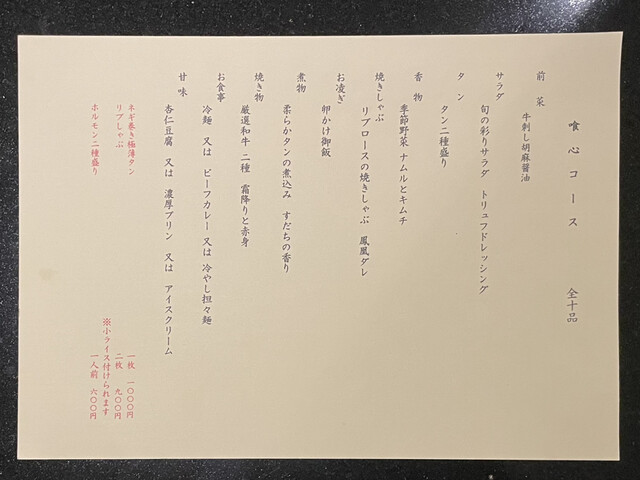 喰心コース 全十品
前菜
牛刺し胡麻醤油
サラダ
旬の彩りサラダ トリュフドレッシング
タン
タン二種盛り
香物
季節野菜 ナムルとキムチ
焼きしゃぶ
リブロースの焼きしゃぶ 鳳凰ダレ
お凌ぎ
卵かけ御飯
煮物
柔らかタンの煮込み すだちの香り
焼き物
厳選和牛 二種 霜降りと赤身
お食事
冷麺 又は ビーフカレー 又は 冷やし担々麺
甘味
杏仁豆腐 又は 濃厚プリン 又は アイスクリーム
ネギ巻き極薄タン 一枚 一〇〇〇円
リブしゃぶ 二枚 九〇〇円
※小ライス付けられます
ホルモン二種盛り 一人前 六〇〇円